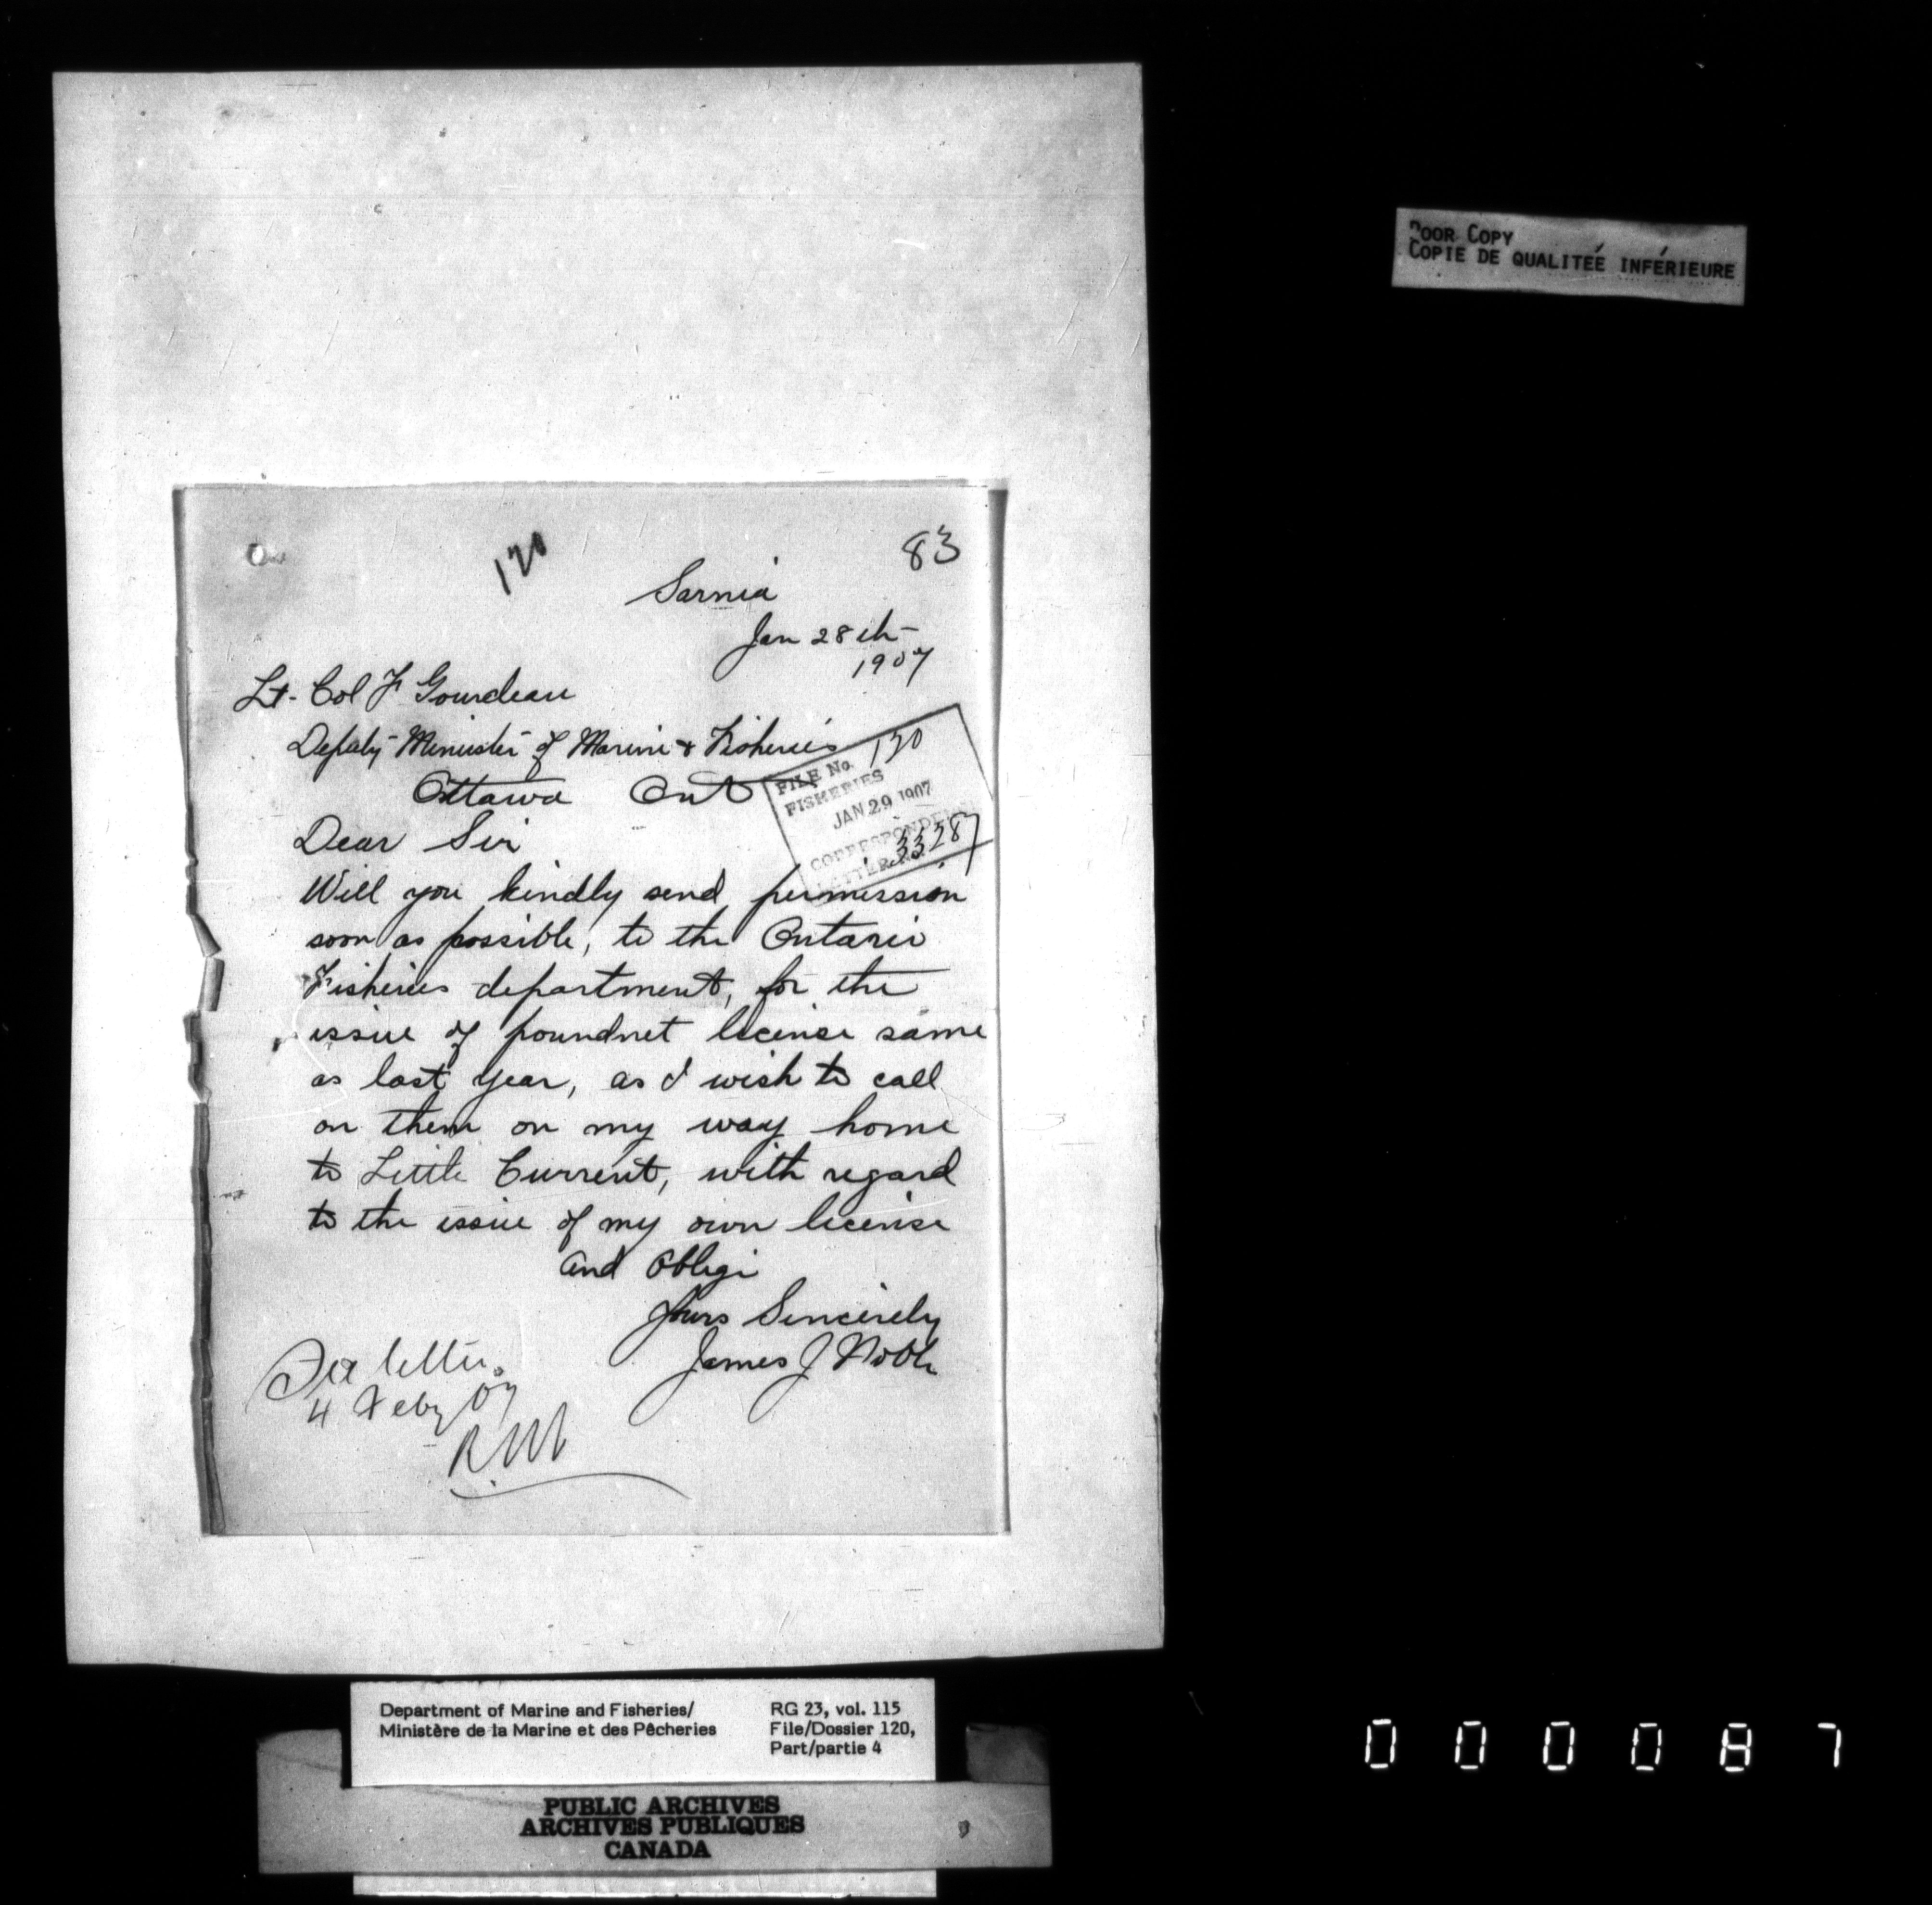 POOR COPY
COPIE DE QUALITÉE INFÉRIEURE
120
83
Sarnia
Jan 28th
1907
Lt. Col F Gourdeau
Deputy Minister of Marine & Fisheries
Ottawa Ont
FILE No. 120
FISHERIES
JAN 29 1907
CORRESPONDENCE
LETTER No. 33287
Dear Sir
Will you kindly send permission
soon as possible, to the Ontario
Fisheries department, for the
issue of poundnet license same
as last year, as I wish to call
on them on my way home
to Little Current, with regard
to the issue of my own license
and Oblige
Yours Sincerely
James J Noble
See letter
4 Feby 07
Department of Marine and Fisheries/
Ministère de la Marine et des Pêcheries
RG 23, vol. 115
File/Dossier 120,
Part/partie 4
PUBLIC ARCHIVES
ARCHIVES PUBLIQUES
CANADA
000087